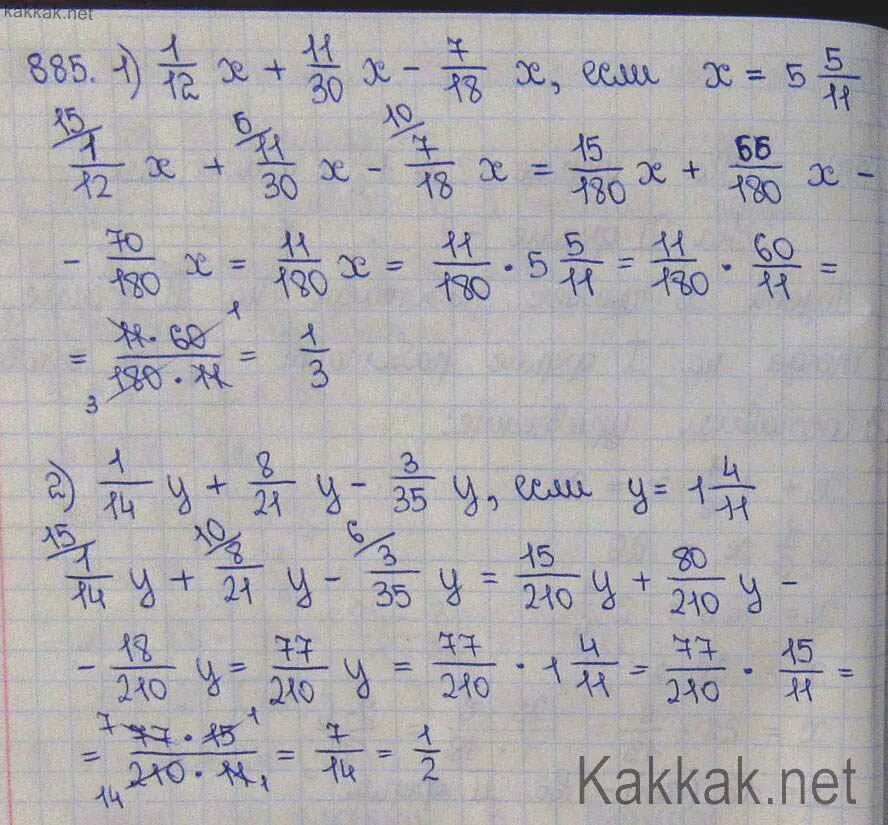 kakkak.net
885. 1) 1/12 x + 11/30 x - 7/18 x, если x = 5 5/11
15/ 1/12 x + 6/ 11/30 x - 10/ 7/18 x = 15/180 x + 66/180 x -
- 70/180 x = 11/180 x = 11/180 · 5 5/11 = 11/180 · 60/11 =
= 11 · 60 1 / 3 180 · 11 = 1/3
2) 1/14 y + 8/21 y - 3/35 y, если y = 1 4/11
15/ 1/14 y + 10/ 8/21 y - 6/ 3/35 y = 15/210 y + 80/210 y -
- 18/210 y = 77/210 y = 77/210 · 1 4/11 = 77/210 · 15/11 =
= 7 77 · 15 1 / 14 210 · 11 1 = 7/14 = 1/2
Kakkak.net